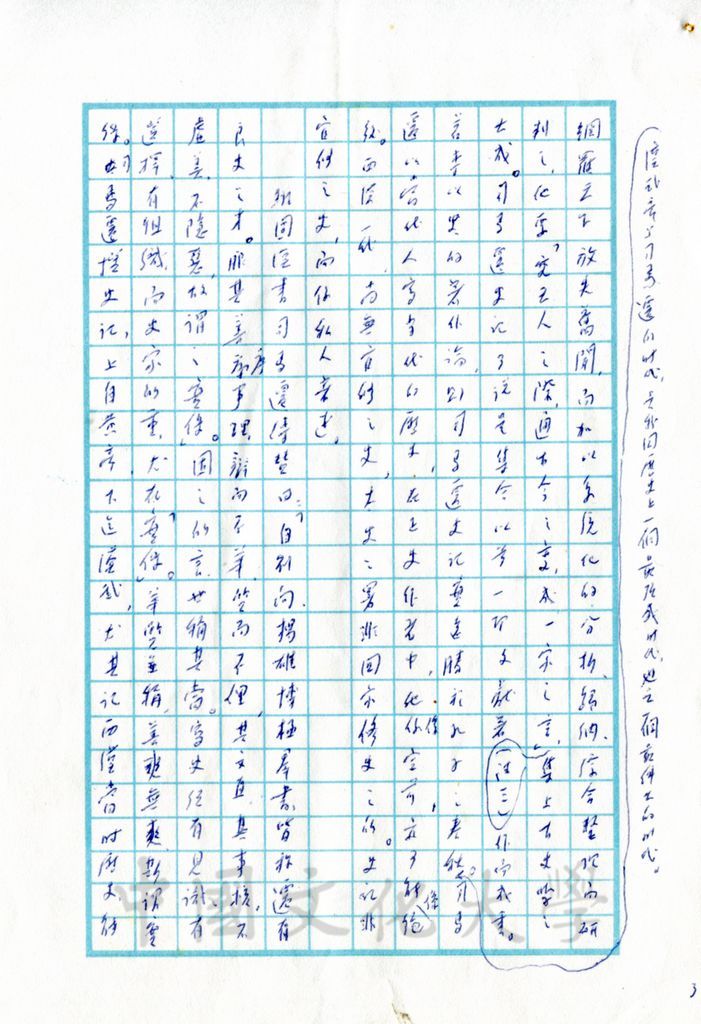 漢武帝與司馬遷的時代,是我國歷史上一個最隆盛時代,也是一個最偉大的時代。
網羅天下放失舊聞,而加以系統化的分析、歸納、綜合整理而研
判之,化學「究天人之際,通古今之變,成一家之言」,集上古史學之
大成。司馬遷史記可說是集合以前一切文獻著(註三)作而成書。
若素以史的著作論,則司馬遷史記實遠勝於孔子之春秋。司馬
遷以當代人寫當代的歷史,在正史作者中,他係空前,亦可能係絕
後。西漢一代,尚無官修之史,太史之署非國家修史之所。史記非
官修之史,而係私人著述。
班固漢書司馬遷傳贊曰:「自劉向、揚雄博極羣書,皆稱遷有
良史之才。服其善序事理,辯而不華,質而不俚,其文直,其事核,不
虛美,不隱惡,故謂之實錄。」固之所言,世稱其當。寫史須有見識,有
選擇,有組織,而史家所重,尤在「實錄」。華質並稱,善惡無爽,斯謂實
錄。司馬遷撰史記,上自黃帝,下迄漢武,尤其記西漢當時歷史,能
3
中國文化大學